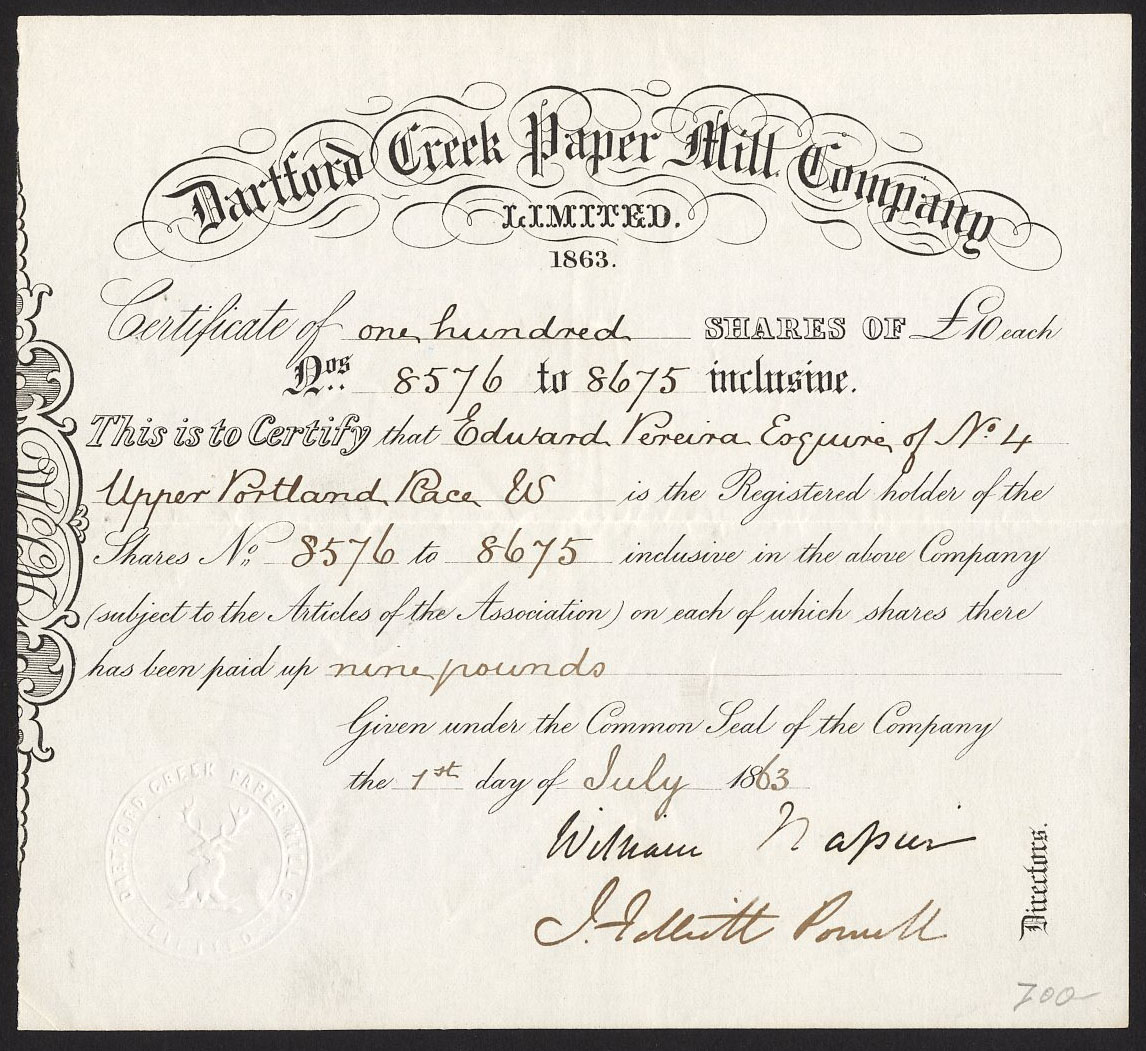 Dartford Creek Paper Mill Company
LIMITED.
1863.
Certificate of one hundred SHARES OF £10 each
Nos. 8576 to 8675 inclusive.
This is to Certify that Edward Pereira Esquire of No 4
Upper Portland Place W is the Registered holder of the
Shares No. 8576 to 8675 inclusive in the above Company
(subject to the Articles of the Association) on each of which shares there
has been paid up nine pounds
Given under the Common Seal of the Company
the 1st day of July 1863
William Napier
Powell
Directors.
DARTFORD CREEK PAPER MILL CO
LIMITED
700